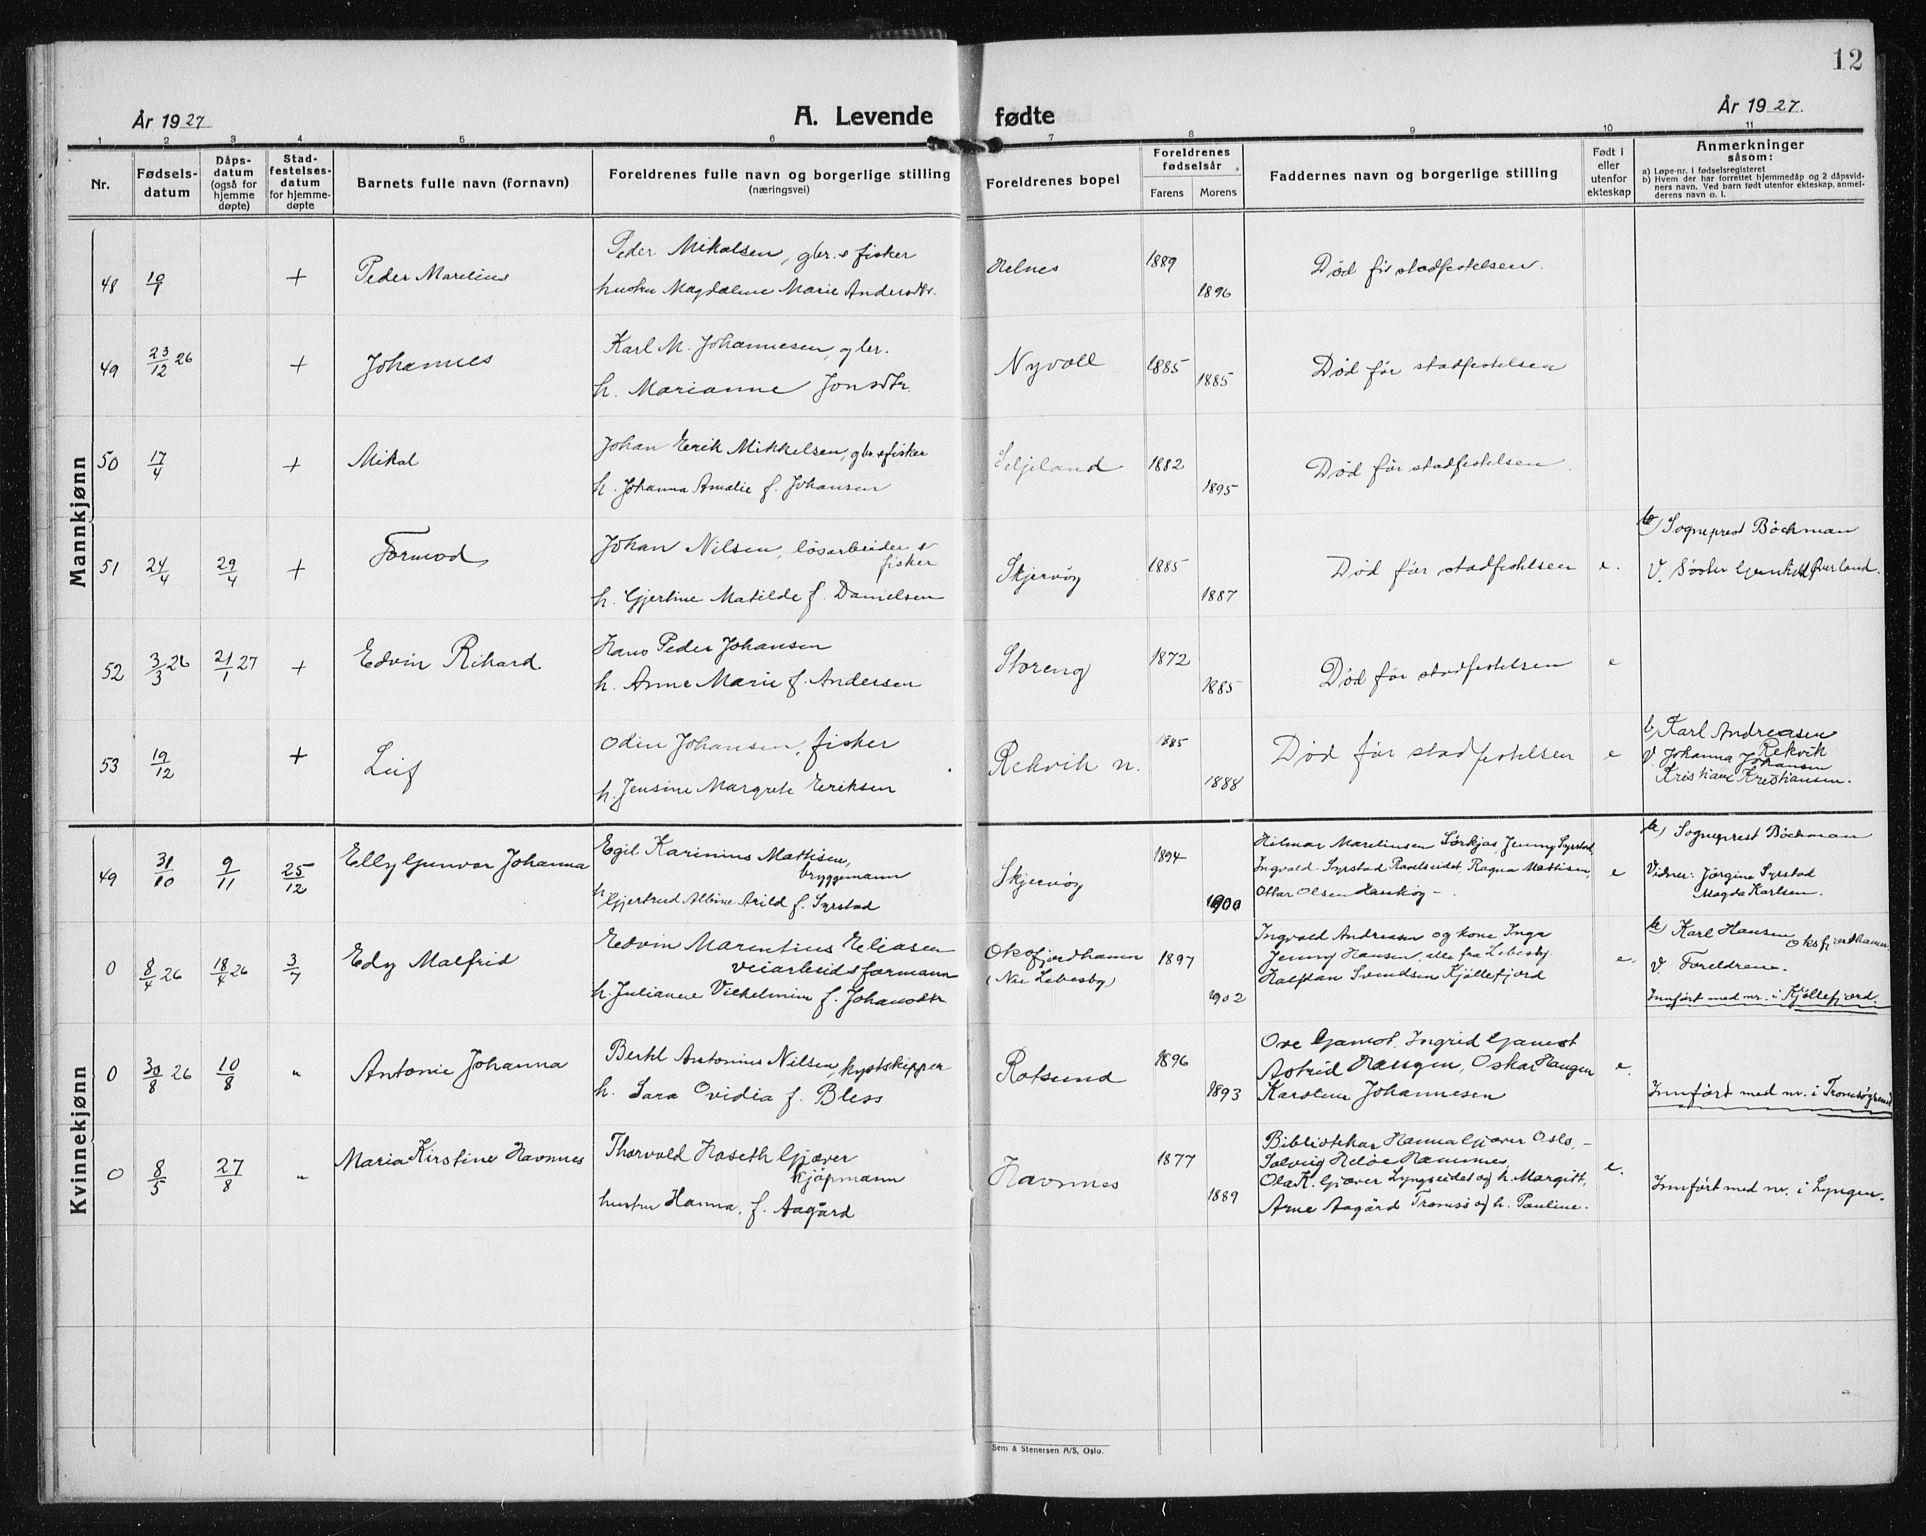 12
År 1927
A. Levende fødte
År 1927.
1 2 3 4 5 6 7 8 9 10 11
Nr.
Fødsels-
datum
Dåps-
datum
(også for
hjemme
døpte)
Stad-
festelses-
datum
for hjemme-
døpte
Barnets fulle navn (fornavn)
Foreldrenes fulle navn og borgerlige stilling
(næringsvei)
Foreldrenes bopel
Foreldrenes
fødselsår
Farens Morens
Faddernes navn og borgerlige stilling
Født i
eller
utenfor
ekteskap
Anmerkninger
såsom:
a) Løpe-nr. i fødselsregisteret
b) Hvem der har forrettet hjemmedåp og 2 dåpsvid-
ners navn. Ved barn født utenfor ekteskap, anmel-
derens navn o. l.
Mannkjønn
48 19/1 + Peder Marelius
Peder Mikalsen, gbr. & fisker
hustru Magdalene Marie Andersdtr.
Helnes 1889
1896
Død før stadfestelsen.
49 23/12 26 + Johannes
Karl M. Johannesen, gbr.
h. Marianne Jonsdtr.
Nyvoll 1885
1885
Død før stadfestelsen
50 17/4 + Mikal
Johan Erik Mikkelsen, gbr & fisker
h. Johanna Amalie f. Johansen
Seljeland 1882
1895
Død før stadfestelsen.
51 24/4 29/4 + Tormod
Johan Nilsen, løsarbeider &
fisker
h. Gjertine Matilde f. Danielsen
Skjervøy 1885
1887
Død før stadfestelsen e.
b) Sogneprest Bøckman
V. Søster Øverland.
52 3/3 26 21/1 27 + Edvin Rikard
Hans Peder Johansen
h. Anne Marie f. Andersen
Storeng 1872
1885
Død før stadfestelsen e
53 19/12 + Leif
Odin Johansen, fisker
h. Jensine Margrete Eriksen
Rekvik n. 1885
1888
Død før stadfestelsen e
b) Karl Andreasen
Rekvik
V. Johanna Johansen
Kristiane Kristiansen.
Kvinnekjønn
49 31/10 9/11 25/12 Elly Gunvor Johanna
Egil Karinius Mattisen,
bryggemann
h. Gjertrud Albine Arild f. Syrstad
Skjervøy 1894
1900
Hilmar Mareliussen Sørkjos, Jenny Syrstad,
Ingvald Syrstad Ravelseidet, Ragna Mattisen,
Ottar Olsen Hauköy -.
e
b) Sogneprest Bøckman
Vidner: Jørgine Syrstad
Magda Karlsen.
0 8/4 26 18/4 26 3/7 Edy Malfrid
Edvin Marentius Eliasen
veiarbeidsformann
h. Julianne Vilhelmine f. Johansdtr
Oksfjordhamn
(Nu Lebesby)
1897
1902
Ingvald Andreasen og kone Inga
Jenny Hansen, alle fra Lebesby.
Halfdan Svendsen Kjøllefjord
e.
b) Karl Hansen
Oksfjordhamn
V. Foreldrene.
Innført med nr. i Kjøllefjord.
0 30/8 26 10/8 " Antonie Johanna
Berhl Antonius Nilsen, kystskipper
h. Sara Ovidia f. Bless
Rotsund 1896
1893
Ove Gamst, Ingrid Gamst
Astrid Haugen, Oskar Haugen
Karoline Johannesen
e.
Innført med nr. i Tromsøysund
0 8/5 27/8 " Maria Kirstine Havnnes
Thorvold Hoseth Giæver
kjøpmann
hustru Hanna, f. Aagård
Havnnes 1877
1889
Bibliotekar Hanna Giæver Oslo, -
Solveig Heløe Havnnes,
Ola K. Giæver Lyngseidet og h. Margitt,
Arne Aagård Tromsö og h. Pauline.
e.
Innført med nr. i Lyngen.
Sem & Stenersen A/S, Oslo.